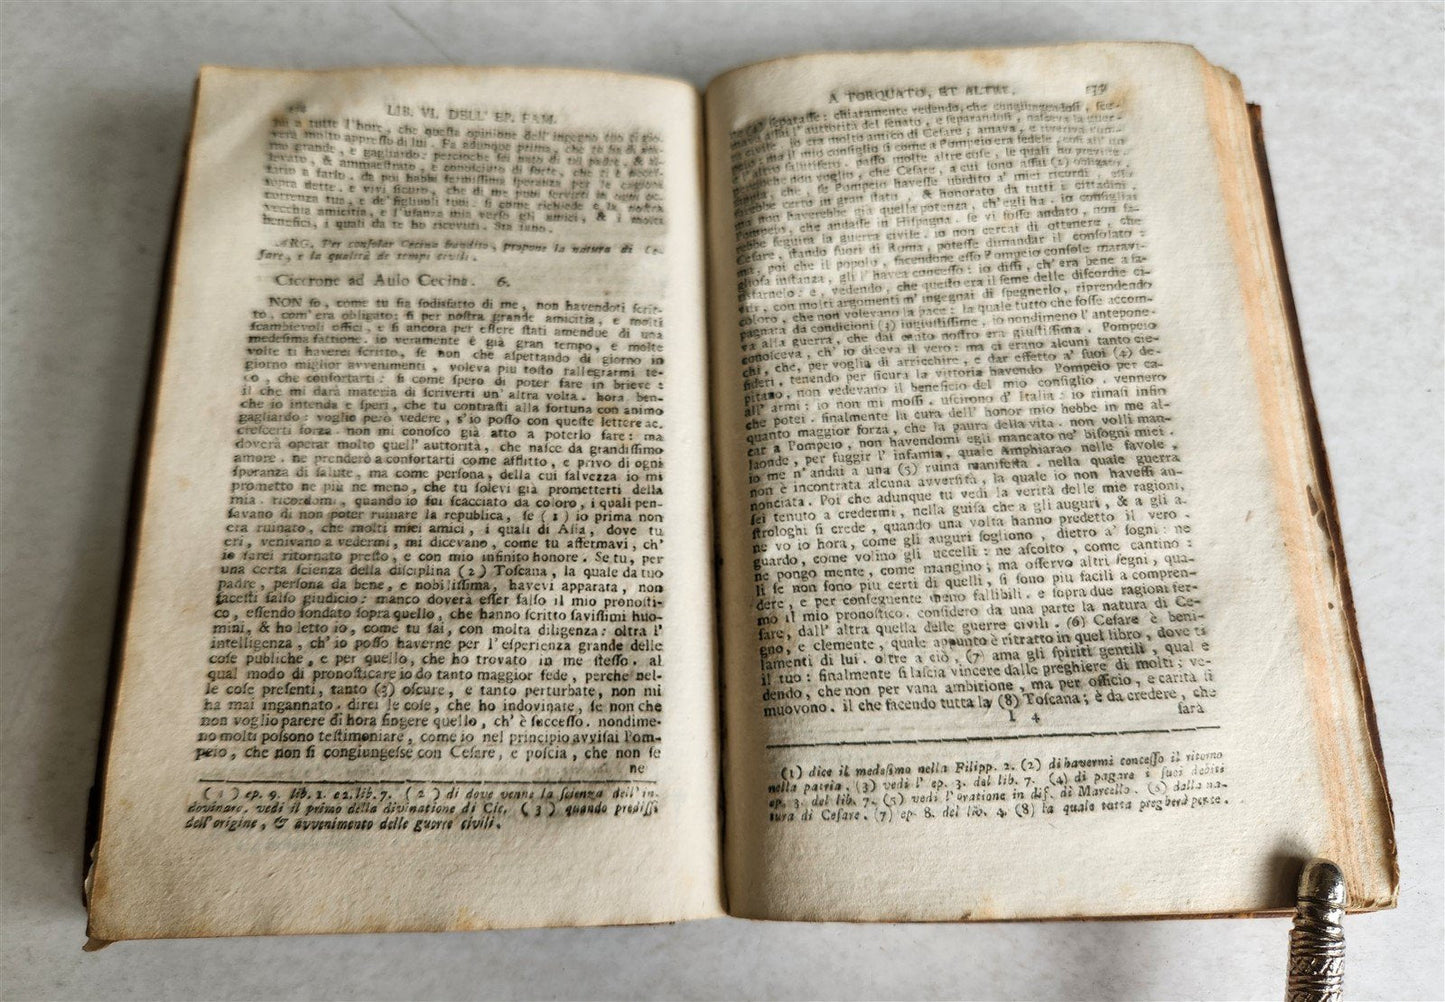 LIB. VI. DELL' EP. FAM.
a tutte l'hore, che questa opinione dell' ingegno tuo ti gio-
verà molto appresso di lui. Fa adunque prima, che tu sia di ani-
mo grande, e gagliardo: percioche sei nato di tal padre, & al-
levato, & ammaestrato, e conosciuto di sorte, che ti è neces-
sario a farlo. da poi habbi fermissima speranza per le cagioni
sopra dette. e vivi sicuro, che di me puoi servirti in ogni oc-
correnza tua, e de' figliuoli tuoi: si come richiede e la nostra
vecchia amicitia, e l'usanza mia verso gli amici, & i molti
benefici, i quali da te ho ricevuti. Sta sano.
ARG. Per consolar Cecina bandito, propone la natura di Ce-
sare, e la qualità de tempi civili.
Cicerone ad Aulo Cecina. 6.
NON so, come tu sia sodisfatto di me, non havendoti scrit-
to, com' era obligato: sì per nostra grande amicitia, e molti
scambievoli offici, e sì ancora per essere stati amendue di una
medesima fattione. io veramente è già gran tempo, e molte
volte ti haverei scritto, se non che aspettando di giorno in
giorno miglior avvenimenti, voleva piu tosto rallegrarmi te-
co, che confortarti: sì come spero di poter fare in brieve:
il che mi darà materia di scriverti un' altra volta. hora ben-
che io intenda e speri, che tu contrasti alla fortuna con animo
gagliardo: voglio però vedere, s'io posso con queste lettere ac-
crescerti forza. non mi conosco già atto a poterlo fare: ma
doverà operar molto quell' auttorità, che nasce da grandissimo
amore. ne prenderò a confortarti come afflitto, e privo di ogni
speranza di salute, ma come persona, della cui salvezza io mi
prometto ne più ne meno, che tu solevi già prometterti della
mia. ricordomi, quando io fui scacciato da coloro, i quali pen-
savano di non poter ruinare la republica, se (1) io prima non
era ruinato, che molti miei amici, i quali di Asia, dove tu
eri, venivano a vedermi, mi dicevano, come tu affermavi, ch'
io sarei ritornato presto, e con mio infinito honore. Se tu, per
una certa scienza della disciplina (2) Toscana, la quale da tuo
padre, persona da bene, e nobilissima, havevi apparata, non
facesti falso giudicio: manco doverà esser falso il mio pronosti-
co, essendo fondato sopra quello, che hanno scritto savissimi huo-
mini, & ho letto io, come tu sai, con molta diligenza: oltra l'
intelligenza, ch' io posso haverne per l'esperienza grande delle
cose publiche, e per quello, che ho trovato in me stesso. al
qual modo di pronosticare io do tanto maggior fede, perche nel-
le cose presenti, tanto (3) oscure, e tanto perturbate, non mi
ha mai ingannato. direi le cose, che ho indovinate, se non che
non voglio parere di hora fingere quello, ch' è successo. nondime-
no molti possono testimoniare, come io nel principio avvisai Pom-
peio, che non si congiungesse con Cesare, e poscia, che non se
ne
(1) ep. 9. lib. 1. e 2. lib. 7. (2) di dove venne la scienza dell' in-
dovinare. vedi il primo della divinatione di Cic. (3) quando predissi
dell' origine, & avvenimento delle guerre civili.
A TORQUATO, ET ALTRI. 137
ne (4) separasse: chiaramente vedendo, che congiungendosi, sce-
mava assai l' autorità del senato, e separandosi, nasceva la guer-
ra civile. io era molto amico di Cesare; amava, e riveriva Pom-
peio: ma il mio consiglio sì come a Pompeio era fedele, così all' uno
e l' altro salutifero. passo molte altre cose, le quali ho previste,
percioche non voglio, che Cesare, a cui sono assai (1) obligato,
intenda, che, se Pompeio havesse ubidito a' miei ricordi, egli
sarebbe certo in gran stato, & honorato da tutti i cittadini,
ma non haverebbe già quella potenza, ch' egli ha. io consigliai
Pompeio, che andasse in Hispagna. se vi fosse andato, non sa-
rebbe seguita la guerra civile. io non cercai di ottenere, che
Cesare, stando fuori di Roma, potesse dimandar il consolato:
ma, poi che il popolo, facendone esso Pompeio console maravi-
gliosa instanza, gli l' havea concesso: io dissi, ch' era bene a sa-
tisfarnelo: e, vedendo, che questo era il seme delle discordie ci-
vili, con molti argomenti m' ingegnai di spegnerlo, riprendendo
coloro, che non volevano la pace: la quale tutto che fosse accom-
pagnata da condicioni (3) ingiustissime, io nondimeno l' antepone-
va alla guerra, che dal canto nostro era giustissima. Pompeio
conosceva, ch' io diceva il vero: ma ci erano alcuni tanto cie-
chi, che, per voglia di arricchire, e dar effetto a' suoi (4) de-
sideri, tenendo per sicura la vittoria havendo Pompeio per ca-
pitano, non vedevano il beneficio del mio consiglio. vennero
all' armi: io non mi mossi. uscirono d' Italia: io rimasi infin
che potei. finalmente la cura dell' honor mio hebbe in me al-
quanto maggior forza, che la paura della vita. non volli man-
car a Pompeio, non havendomi egli mancato ne' bisogni miei.
laonde, per fuggir l' infamia, quale Amphiarao nelle favole,
io me n' andai a una (5) ruina manifesta. nella quale guerra
non è incontrata alcuna avversità, la quale io non havessi an-
nonciata. Poi che adunque tu vedi la verità delle mie ragioni,
sei tenuto a credermi, nella guisa che a gli auguri, & a gli a-
strologhi si crede, quando una volta hanno predetto il vero.
ne vo io hora, come gli auguri sogliono, dietro a' sogni: ne
guardo, come volino gli uccelli: ne ascolto, come cantino:
ne pongo mente, come mangino; ma osservo altri segni, qua-
li se non son piu certi di quelli, sì sono piu facili a compren-
dere, e per conseguente meno fallibili. e sopra due ragioni fer-
mo il mio pronostico. considero da una parte la natura di Ce-
sare, dall' altra quella delle guerre civili. (6) Cesare è beni-
gno, e clemente, quale appunto è ritratto in quel libro, dove ti
lamenti di lui. oltre a ciò, (7) ama gli spiriti gentili, qual è
il tuo: finalmente si lascia vincere dalle preghiere di molti: ve-
dendo, che non per vana ambitione, ma per officio, e carità si
muovono. il che facendo tutta la (8) Toscana; è da credere, che
I 4 sarà
(1) dice il medesimo nella Filipp. 2. (2) di havermi concesso il ritorno
nella patria. (3) vedi l' ep. 3. del lib. 7. (4) di pagare i suoi debiti
ep. 3. del lib. 7. (5) vedi l' oratione in dif. di Marcello. (6) dalla na-
tura di Cesare. (7) ep. 8. del lib. 4. (8) la quale tutta pregherà per te.